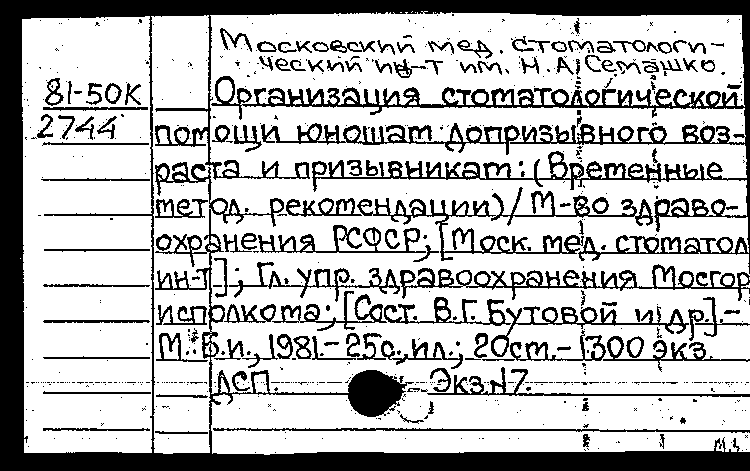 Московский мед. стоматологи-
ческий ин-т им. Н.А. Семашко.
81-50К Организация стоматологической
2744 помощи юношам допризывного воз-
раста и призывникам: (Временные
метод. рекомендации) / М-во здраво-
охранения РСФСР; [Моск. мед. стоматол.
ин-т]; Гл. упр. здравоохранения Мосгор
исполкома; [Сост. В.Г. Бутовой и др.].-
М.: Б.и., 1981.- 25с., ил.; 20см.- 1300 экз.
ДСП. Экз.N7.